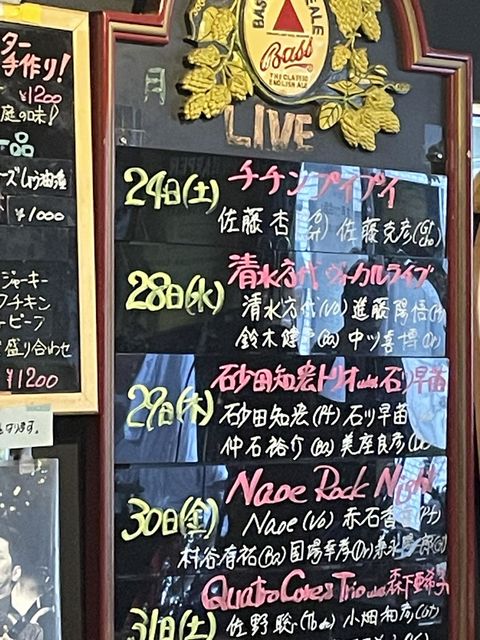 ター
手作り!
¥1200
庭の味!
一品
¥1000
ジャーキー
チキン
ビーフ
盛り合わせ
¥1200
ALE
Bass
THE CLASSIC
ENGLISH ALE
月
LIVE
24日(土) チチンプイプイ
佐藤 杏 佐藤克彦
28日(水) 清水方代 ヴォーカルライブ
清水方代(Vo) 進藤陽悟
鈴木健 (Ba) 中ツ喜博
29日(木) 砂田知宏トリオ 石川早苗
砂田知宏(Pf) 石川早苗
仲石裕介(Ba) 美座良彦
30日(金) Naoe Rock Night
Naoe(Vo) 赤石香 (Pf)
村谷存祐(Ba) 国場幸孝(Dr)
Quatro Cores Trio
31日(土) 佐野 聡(Tb) 小畑和彦(Gt)